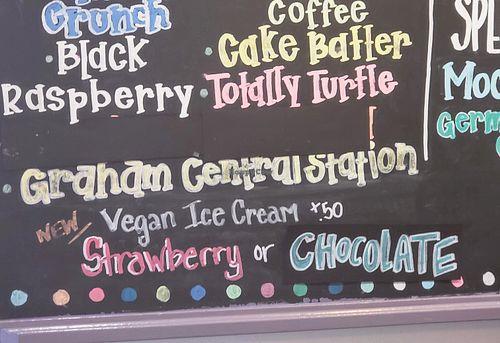 Crunch
Black
Raspberry
Coffee
Cake Batter
Totally Turtle
SPE
Moc
Germ
Graham Central Station
NEW Vegan Ice Cream +.50
Strawberry or CHOCOLATE